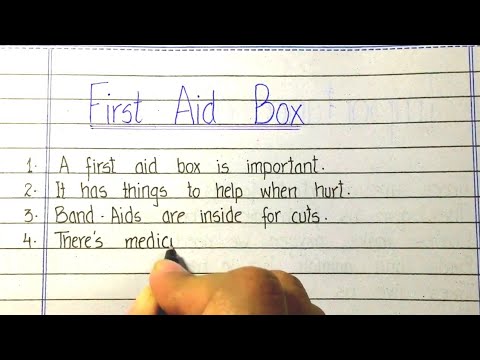 First Aid Box
1. A first aid box is important.
2. It has things to help when hurt.
3. Band-Aids are inside for cuts.
4. There's medic